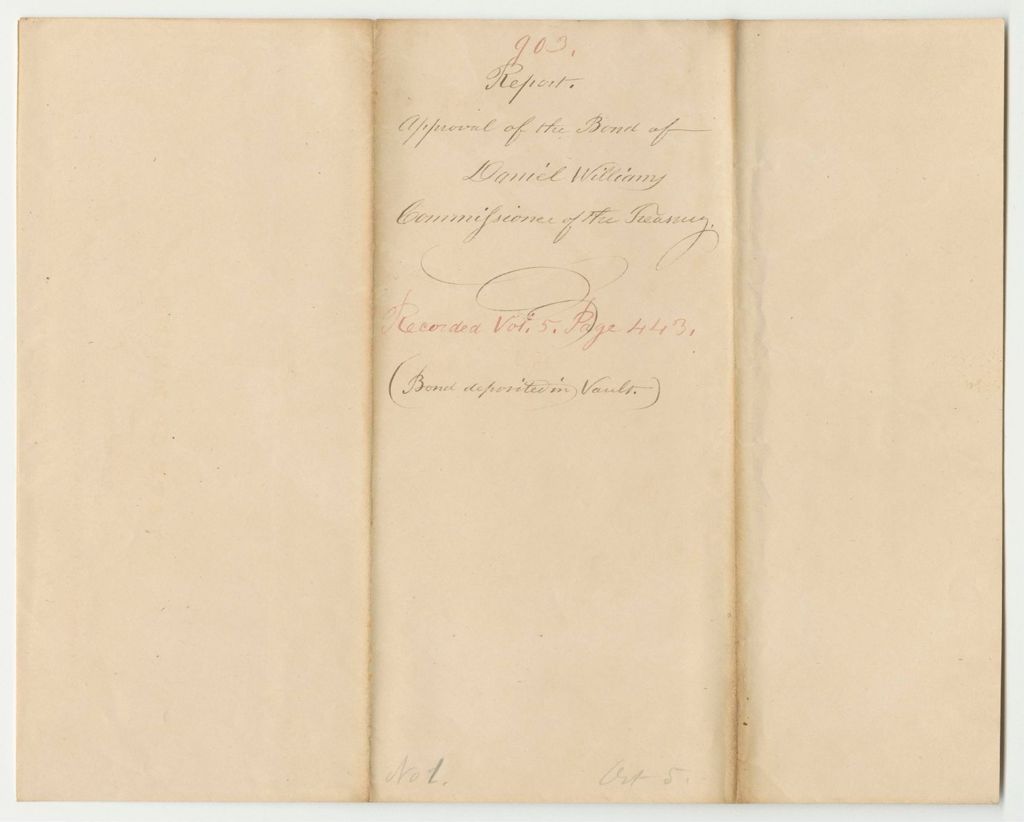 903.
Report.
Approval of the Bond of
Daniel Williams
Commissioner of the Treasury.
Recorded Vol. 5. Page 443.
(Bond deposited in Vault.)
No 1. Oct 5.